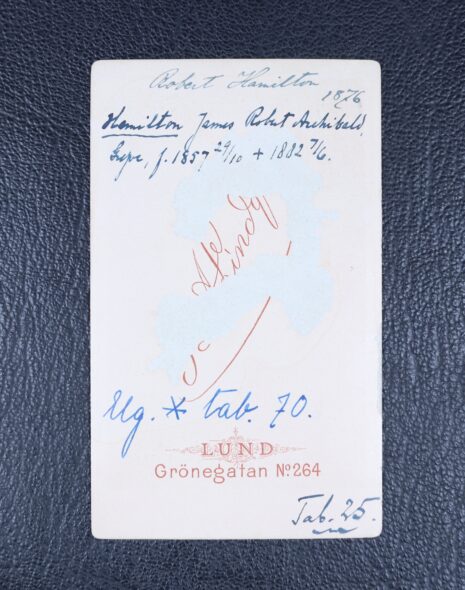 Robert Hamilton
1876
Hamilton James Robert Archibald,
Greve, f. 1857 29/10 + 1882 7/6.
Lindg
Ug. * tab. 70.
LUND
Grönegatan No. 264
Tab. 25.